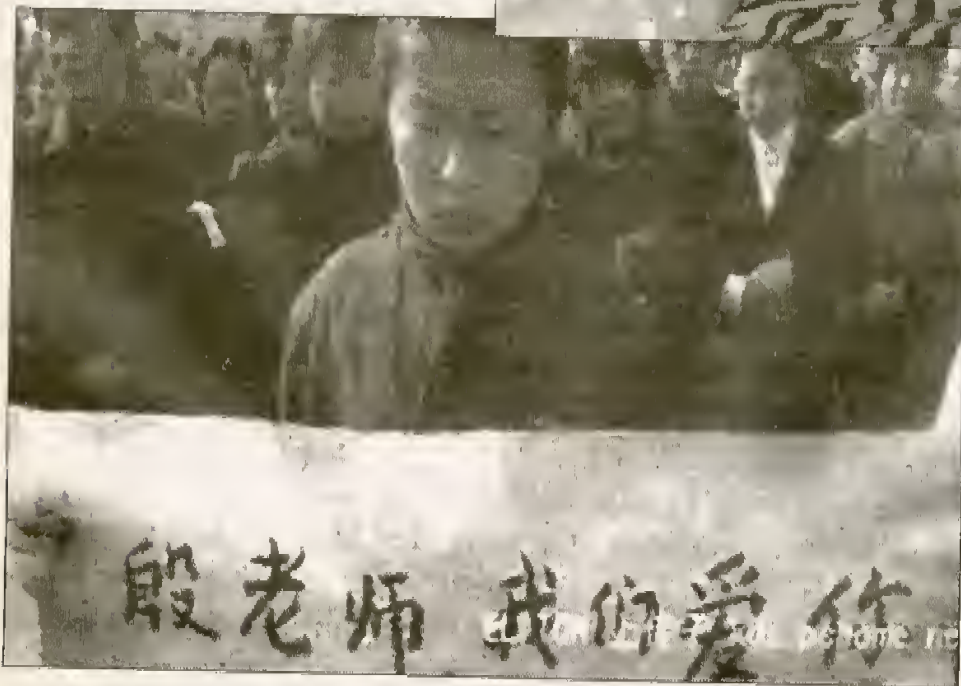 殷老师 我们爱你